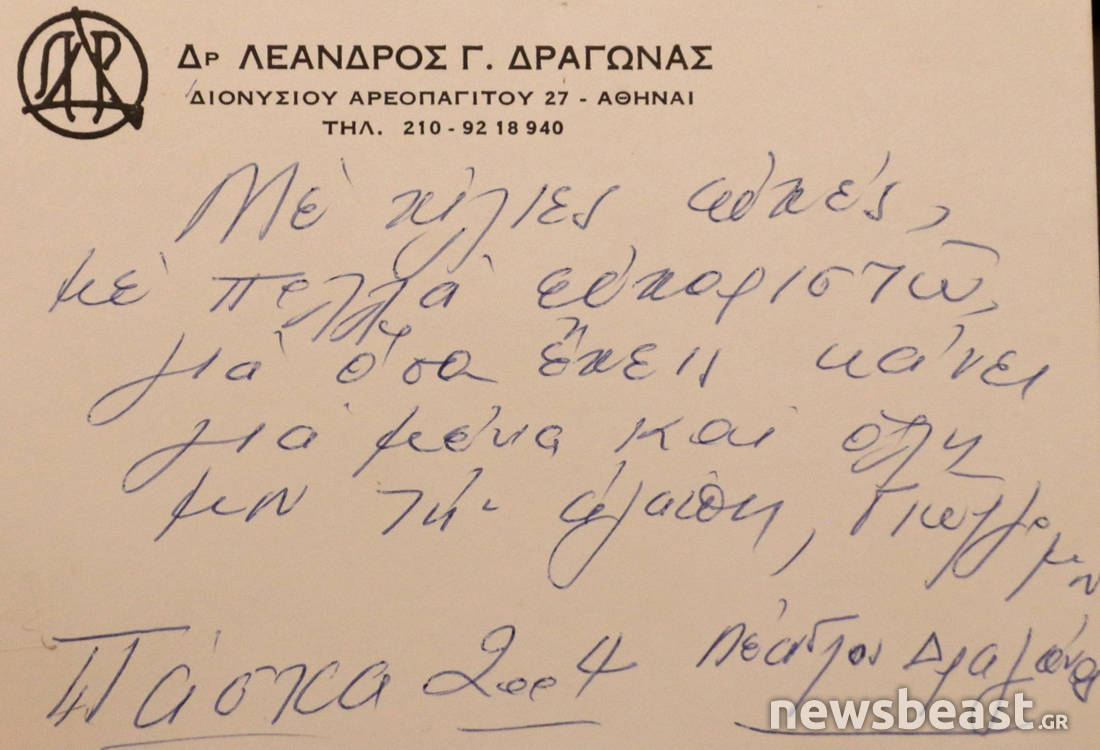 Δρ ΛΕΑΝΔΡΟΣ Γ. ΔΡΑΓΩΝΑΣ
ΔΙΟΝΥΣΙΟΥ ΑΡΕΟΠΑΓΙΤΟΥ 27 - ΑΘΗΝΑΙ
ΤΗΛ. 210 - 92 18 940
Μέ χίλιες εὐχές,
μέ πολλά εὐχαριστῶ,
γιά ὅσα ἔχεις κάνει
γιά μένα καί ὅλη
μου τήν ἀγάπη, Γιῶργο
μου
Πάσχα 2004 Λέανδρος Δραγώνας
newsbeast.GR